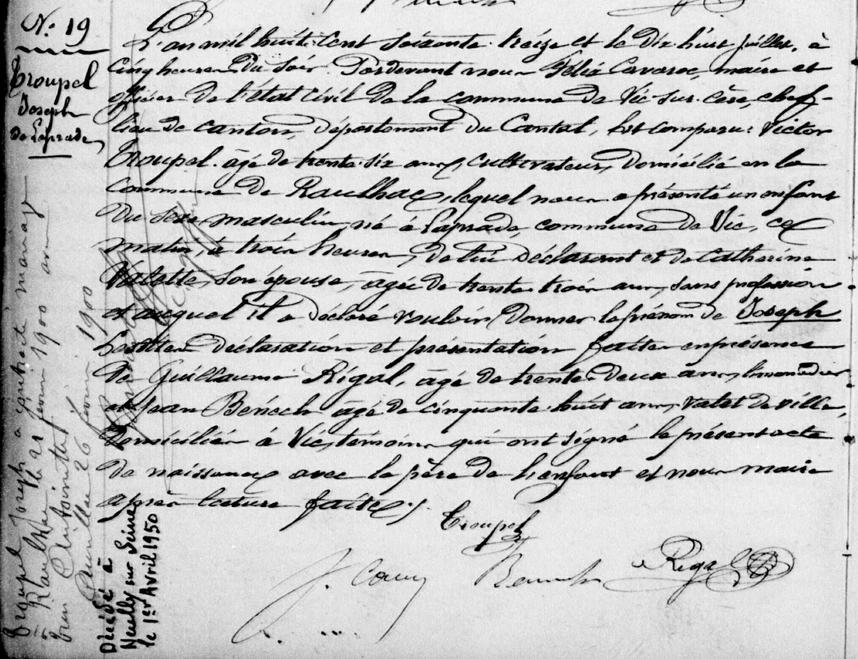 N.º 19
Troupel
Joseph
de Laprade
L'an mil huit cent soixante treize et le dix huit juillet, à
cinq heures du soir. Pardevant nous Félix Cavaroc, maire et
officier de l'état civil de la commune de Vic-sur-Cère, chef-
lieu de canton, département du Cantal, Est comparu: Victor
Troupel, âgé de trente six ans, cultivateur, domicilié en la
commune de Raulhac, lequel nous a présenté un enfant
du sexe masculin, né à Laprade, commune de Vic, ce
matin, à trois heures, de lui déclarant et de Catherine
Valette, son épouse, âgée de trente trois ans, sans profession
et auquel il a déclaré vouloir donner le prénom de Joseph
Lesdites déclaration et présentation faites en présence
de Guillaume Rigal, âgé de trente deux ans,
et Jean Benech âgé de cinquante huit ans, valet de ville,
domiciliés à Vic, témoins qui ont signé le présent acte
de naissance avec le père de l'enfant et nous maire
après lecture faite./.
Troupel
Rigal
Troupel Joseph a contracté mariage
à Raulhac le 21 février 1900 avec
Antoinette
26 février 1900
Décédé à
Neuilly sur Seine
le 1er Avril 1950